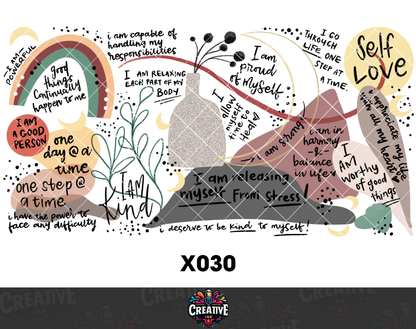 I AM
POWERFUL
good
things
Continually
happen to me
i am capable of
handling my
responsibilities
I AM RELAXING
EACH PART OF MY
BODY
I am
PROUD
of Myself
I GO
THROUGH
LIFE ONE
STEP
AT A
TIME.
Self
LOVE
I
allow
myself
time to
Heal
I AM
A GOOD
PERSON
one
day @ a
time
one step @
a time
i have the power to
face any difficulty
I AM
Kind
i am strong
i am in
harmony
&
balance
in life
i appreciate my life
with all my heart
I
AM
worthy
of good
things
I am releasing
myself From stress!
i deserve to be kind to myself!
X030
CREATIVE
CREATIVE